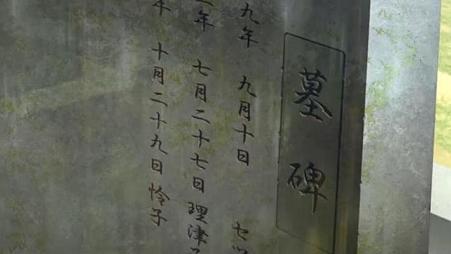 墓碑
九年 九月十日
年 七月二十七日 理津
年 十月二十九日 怜子